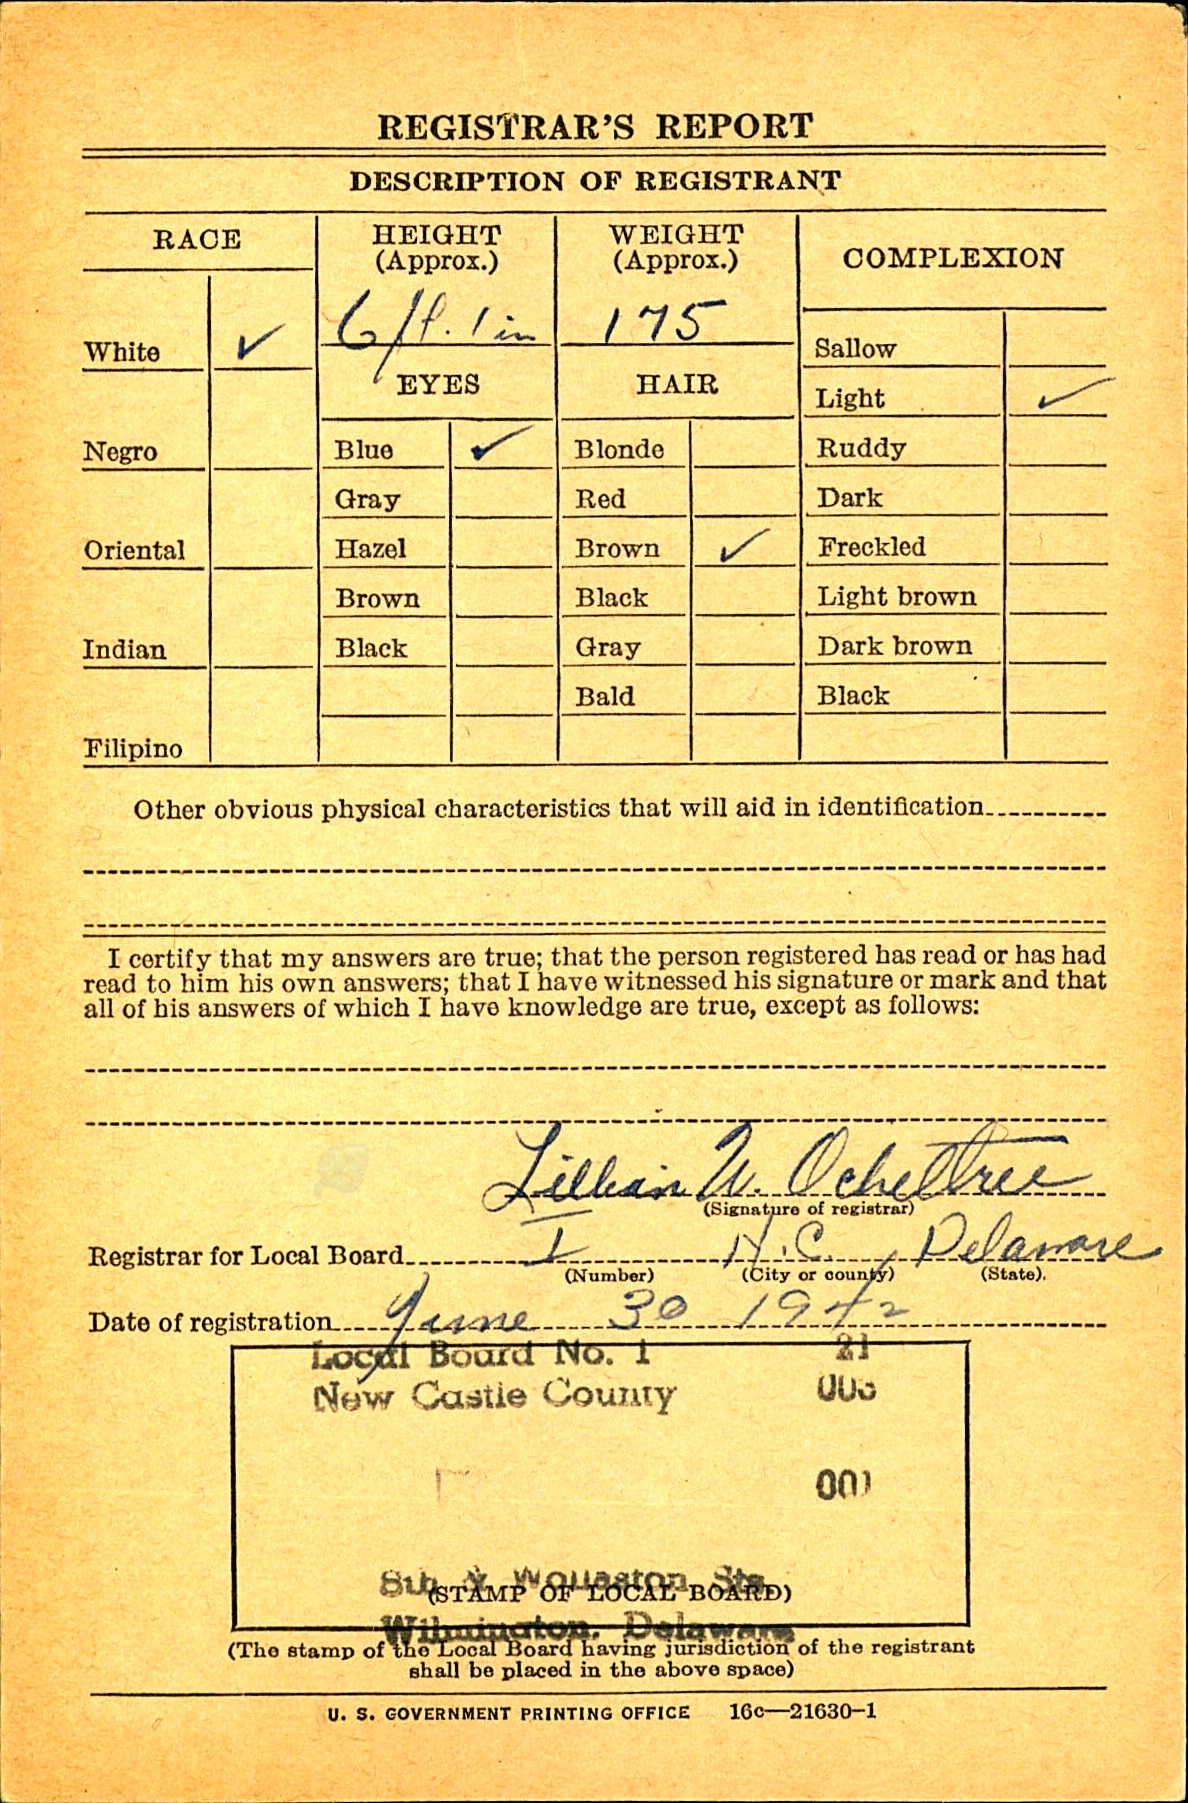 REGISTRAR'S REPORT
DESCRIPTION OF REGISTRANT
RACE
HEIGHT
(Approx.)
WEIGHT
(Approx.)
COMPLEXION
6 ft. 1 in
175
White ✓
EYES
HAIR
Sallow
Light ✓
Negro
Blue ✓
Blonde
Ruddy
Gray
Red
Dark
Oriental
Hazel
Brown ✓
Freckled
Brown
Black
Light brown
Indian
Black
Gray
Dark brown
Bald
Black
Filipino
Other obvious physical characteristics that will aid in identification
I certify that my answers are true; that the person registered has read or has had
read to him his own answers; that I have witnessed his signature or mark and that
all of his answers of which I have knowledge are true, except as follows:
Lillian W. Ocheltree
(Signature of registrar)
Registrar for Local Board I N.C. Delaware
(Number) (City or county) (State).
Date of registration June 30 1942
Local Board No. 1 21
New Castle County 003
001
8th & Wollaston Sts.
(STAMP OF LOCAL BOARD)
Wilmington, Delaware
(The stamp of the Local Board having jurisdiction of the registrant
shall be placed in the above space)
U. S. GOVERNMENT PRINTING OFFICE 16c—21630-1